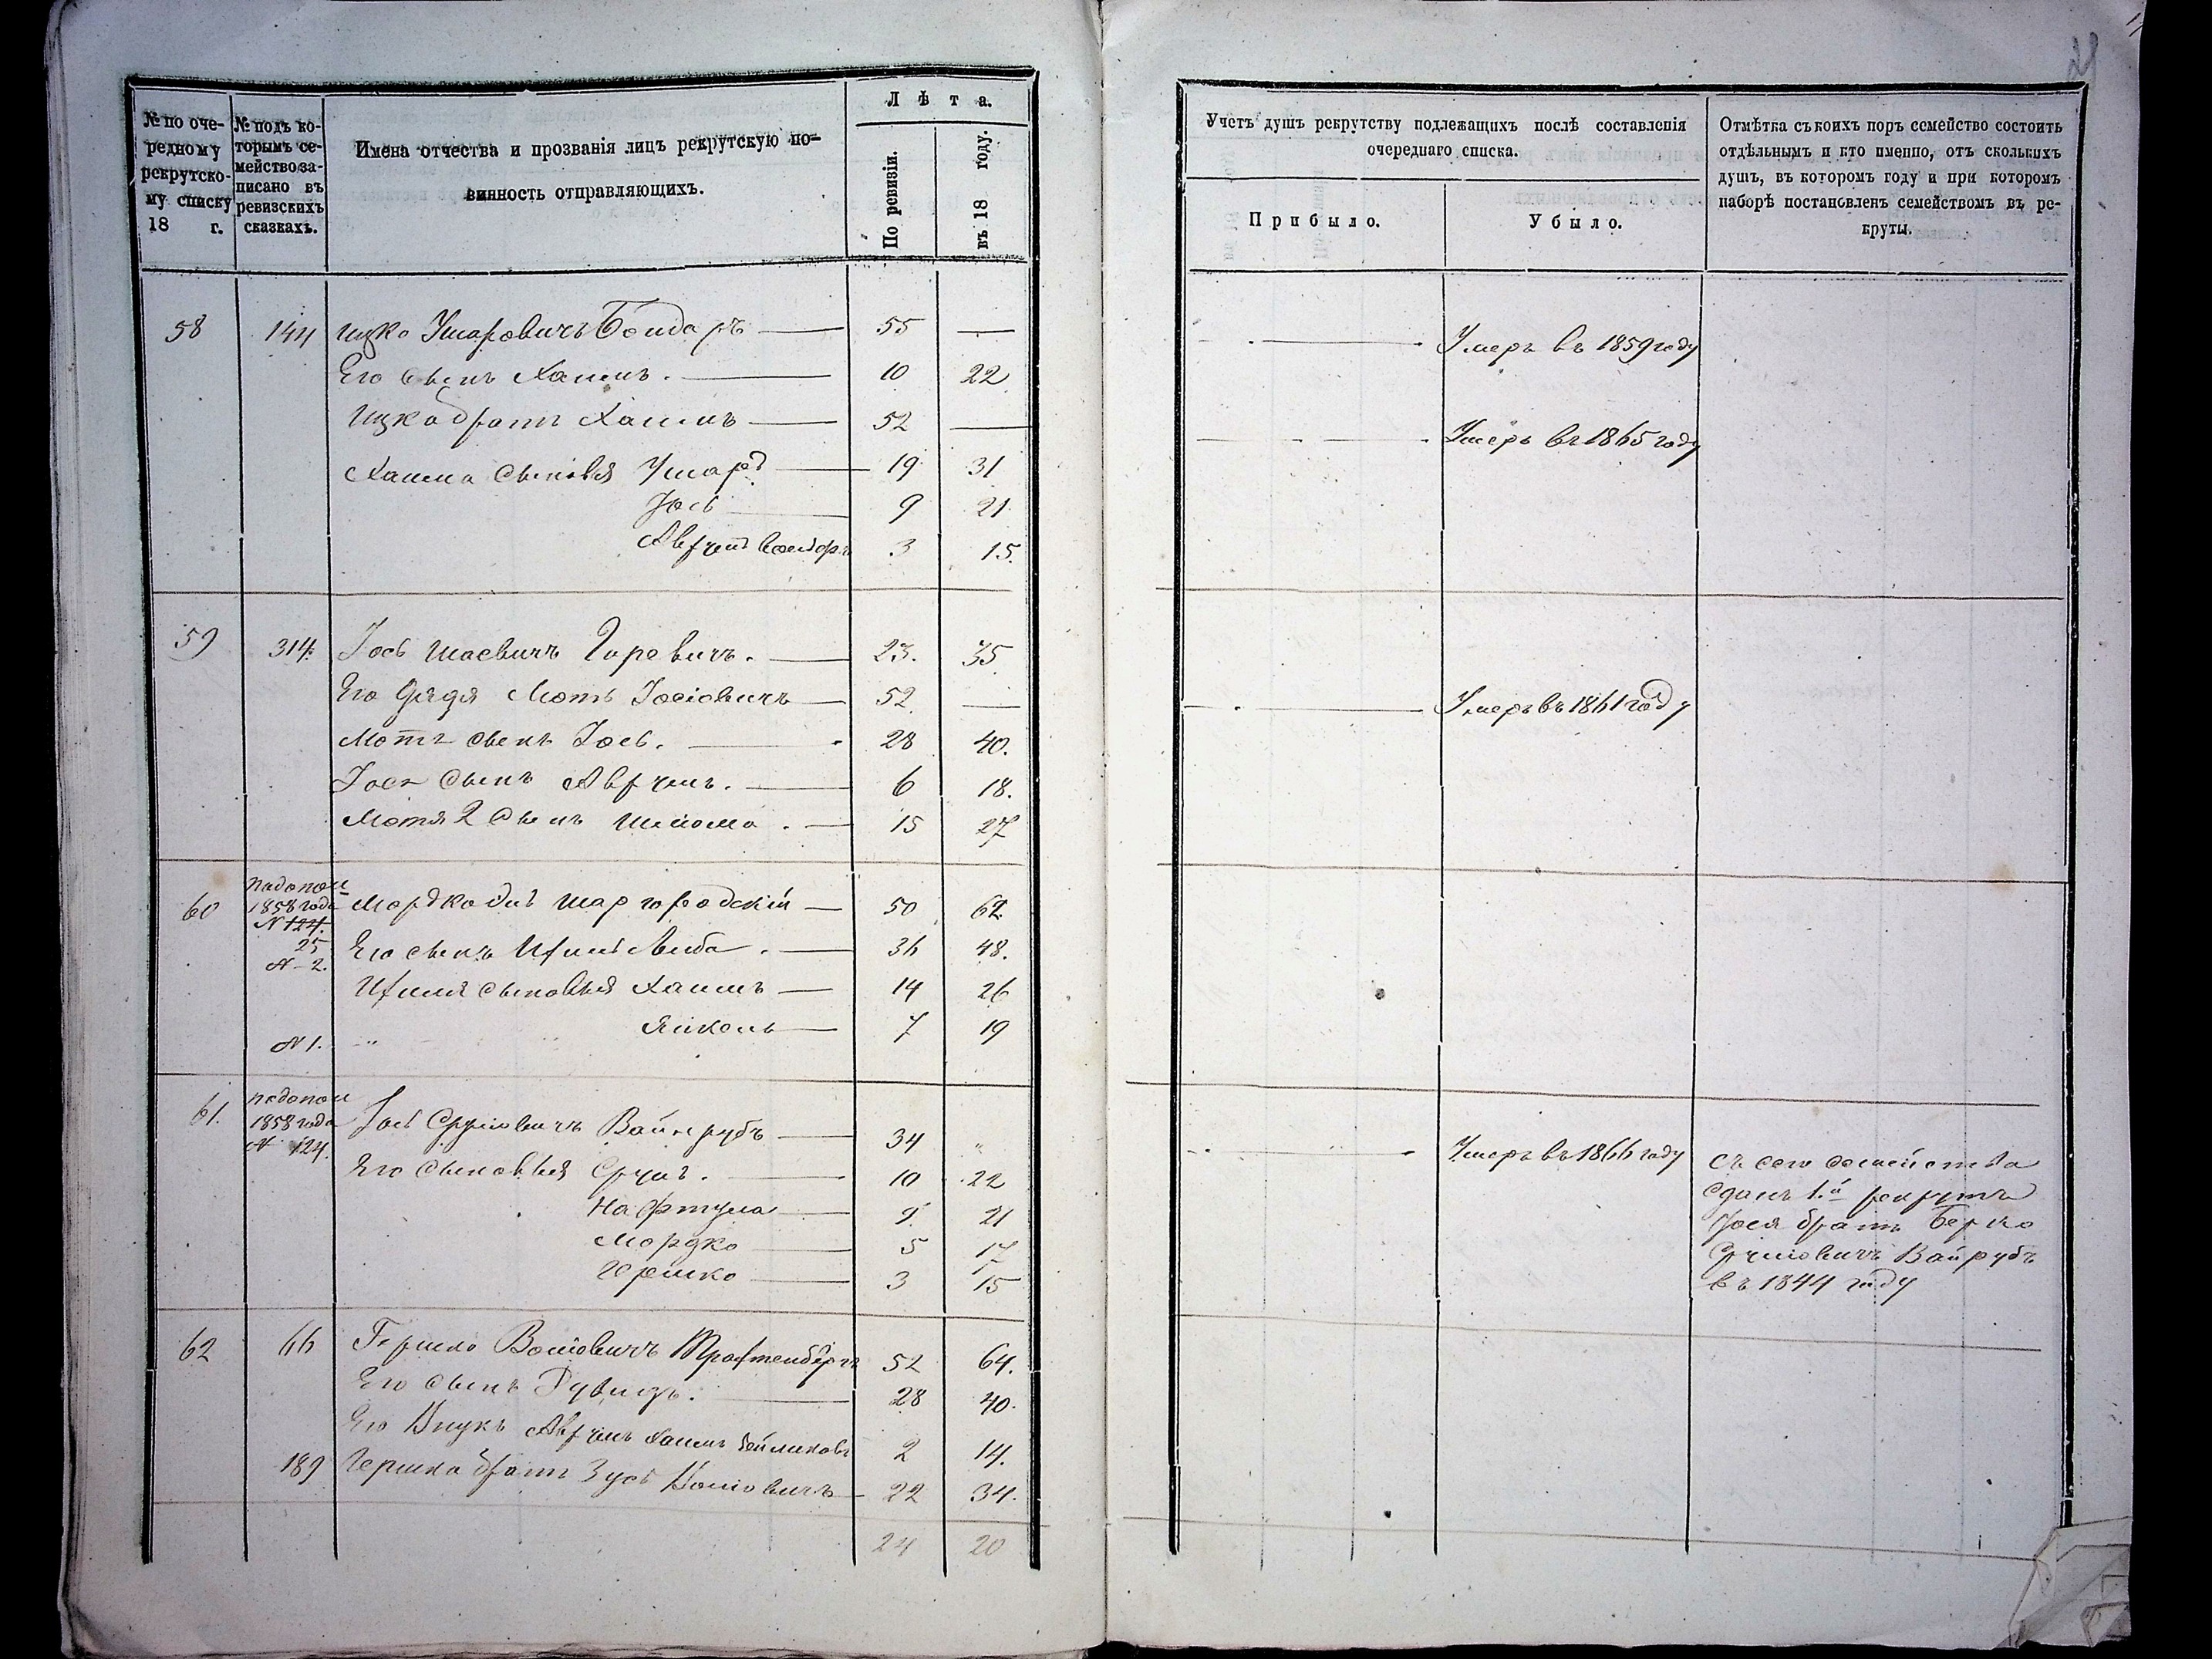 № по оче-
редному
рекрутско-
му списку
18 г.
№ подъ ко-
торымъ се-
мейство за-
писано въ
ревизскихъ
сказкахъ.
Имена отчества и прозванія лицъ рекрутскую по-
винность отправляющихъ.
Лѣта.
По ревизіи.
въ 18 году.
Учетъ душъ рекрутству подлежащихъ послѣ составленія
очереднаго списка.
Прибыло.
Убыло.
Отмѣтка съ коихъ поръ семейство состоитъ
отдѣльнымъ и кто именно, отъ сколькихъ
душъ, въ которомъ году и при которомъ
наборѣ постановленъ семействомъ въ ре-
круты.
58 144 Ицко Умаровичъ Бондаръ — 55 — Умеръ въ 1859 году
Его сынъ Хаимъ. — 10 22
Ицка братъ Хаимъ — 52 — Умеръ въ 1865 году
Хаима сыновья Умаръ — 19 31
Іось 9 21
Аврумъ 3 15.
59 314. Іось Шаевичъ Гуревичъ. — 23. 35
Его дядя Моть Іосіовичъ — 52. — Умеръ въ 1861 году
Моть сынъ Іось. — 28 40.
Іося сынъ Аврумъ. — 6 18.
Мотя 2 сынъ Шлома. — 15 27
60 1858 года Мордко Шаргородскій — 50 62.
N 124.
25
N 2. Его сынъ Лейба. — 36 48.
сыновья Хаимъ — 14 26
N 1. Янкель — 7 19
61. 1858 года
N 124. Іось Сруліовичъ Вайнрубъ — 34 " Умеръ въ 1866 году
Его сыновья Сруль. — 10 22
Нафтула — 9. 21
Мордко — 5 17
Гершко — 3 15
съ сего семейства
сданъ 1.й рекрутъ
Іося братъ Берко
Сруліовичъ Вайрубъ
въ 1844 году
62 66 Гершко Волiовичъ Трахтенберъ 52 64.
Его сынъ Рувинъ. — 28 40.
Его внукъ Аврумъ Хаимъ 2 14.
189 Гершка братъ Зусь Воліовичъ — 22 34.
24 20